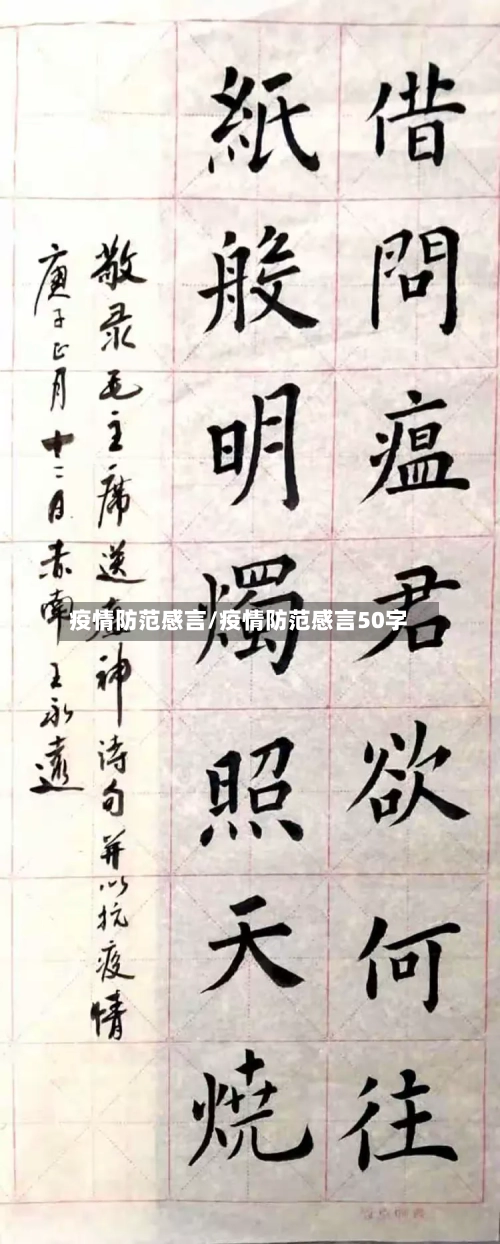 借問瘟君欲何往
紙般明燭照天焼
敬录毛主席送瘟神诗句并以抗疫情
庚子正月十二日赤南王永遠
疫情防范感言/疫情防范感言50字